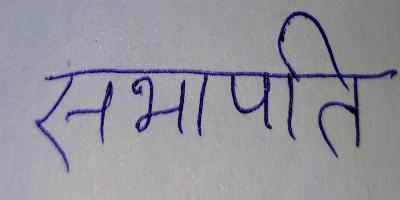 सभापति